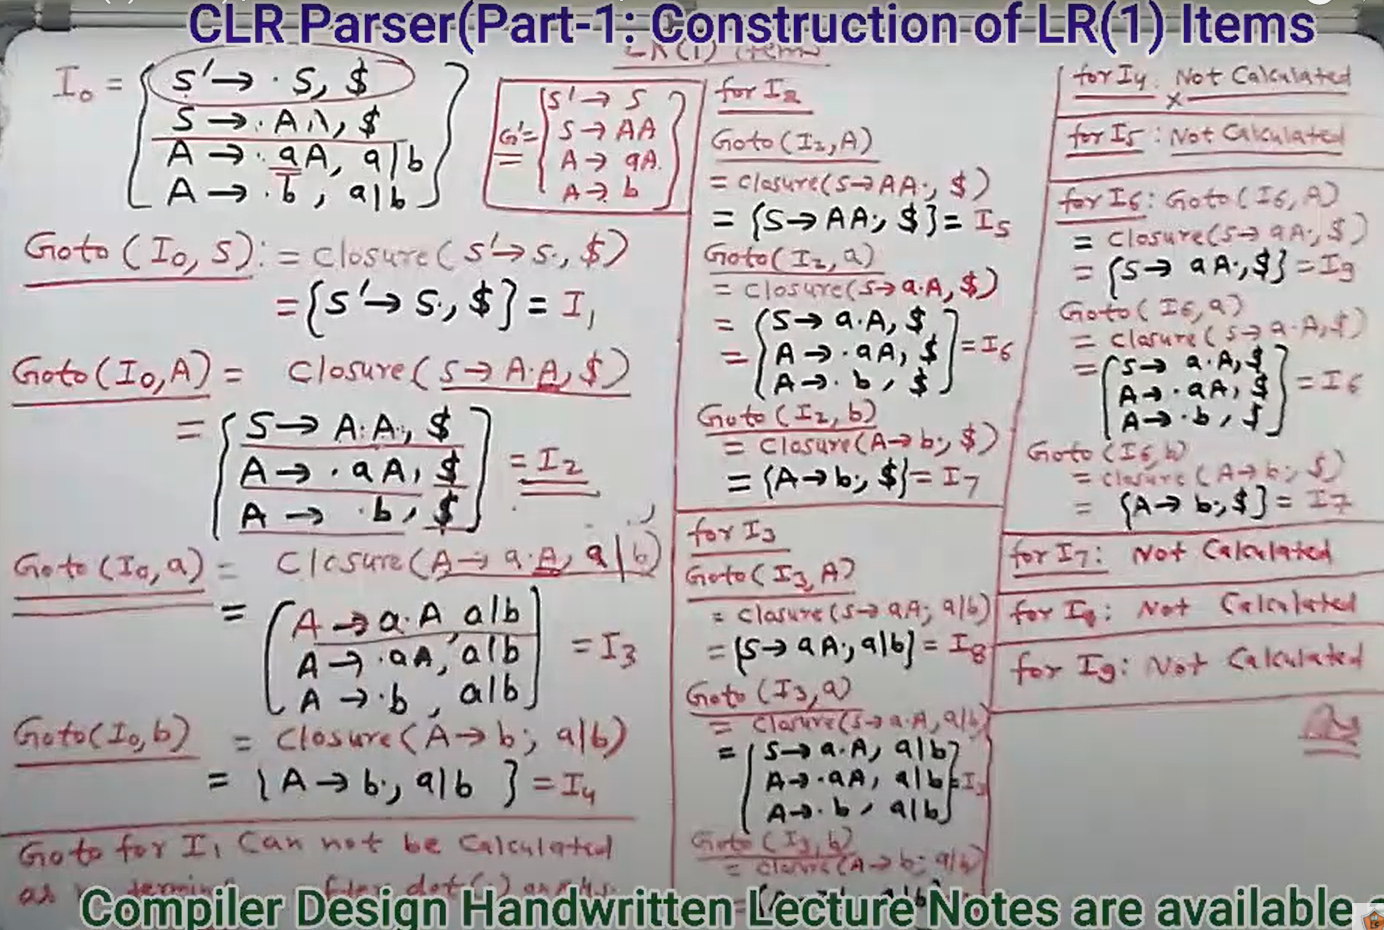 CLR Parser(Part-1: Construction of LR(1) Items
LR(1) items
I0 = { S' → · S, $
S → · AA, $
A → · aA, a|b
A → · b, a|b }
G' = { S' → S
S → AA
A → aA
A → b }
Goto (I0, S): = Closure (S' → S·, $)
= {S' → S·, $} = I1
Goto (I0, A) = Closure (S → A·A, $)
= { S → A·A·, $
A → · aA, $
A → · b, $ } = I2
Goto (I0, a) = Closure (A → a·A, a|b)
= { A → a·A, a|b
A → ·aA, a|b
A → ·b, a|b } = I3
Goto (I0, b) = Closure (A → b·, a|b)
= { A → b·, a|b } = I4
Goto for I1 Can not be Calculated
as after dot(·)
for I2
Goto (I2, A)
= Closure (S → AA·, $)
= {S → AA·, $} = I5
Goto (I2, a)
= Closure (S → a·A, $)
= { S → a·A, $
= A → ·aA, $
A → ·b, $ } = I6
Goto (I2, b)
= Closure (A → b·, $)
= {A → b·, $} = I7
for I3
Goto (I3, A)
= Closure (S → aA·, a|b)
= {S → aA·, a|b} = I8
Goto (I3, a)
= Closure (S → a·A, a|b)
= { S → a·A, a|b
A → ·aA, a|b
A → ·b, a|b } = I3
Goto (I3, b)
= Closure (A → b·, a|b)
for I4: Not Calculated
for I5: Not Calculated
for I6: Goto (I6, A)
= Closure (S → aA·, $)
= {S → aA·, $} = I9
Goto (I6, a)
= Closure (S → a·A, $)
= { S → a·A, $
A → ·aA, $
A → ·b, $ } = I6
Goto (I6, b)
= Closure (A → b·, $)
= {A → b·, $} = I7
for I7: Not Calculated
for I8: Not Calculated
for I9: Not Calculated
Compiler Design Handwritten Lecture Notes are available